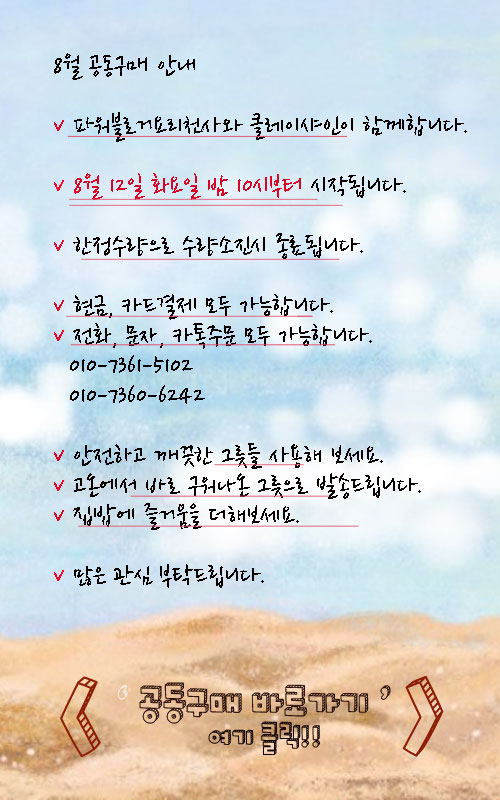 8월 공동구매 안내
v 파워블로거요리천사와 클레이샤인이 함께합니다.
v 8월 12일 화요일 밤 10시부터 시작됩니다.
v 한정수량으로 수량소진시 종료됩니다.
v 현금, 카드결제 모두 가능합니다.
v 전화, 문자, 카톡주문 모두 가능합니다.
010-7361-5102
010-7360-6242
v 안전하고 깨끗한 그릇들 사용해 보세요.
v 고온에서 바로 구워나온 그릇으로 발송드립니다.
v 집밥에 즐거움을 더해보세요.
v 많은 관심 부탁드립니다.
' 공동구매 바로가기 '
여기 클릭!!